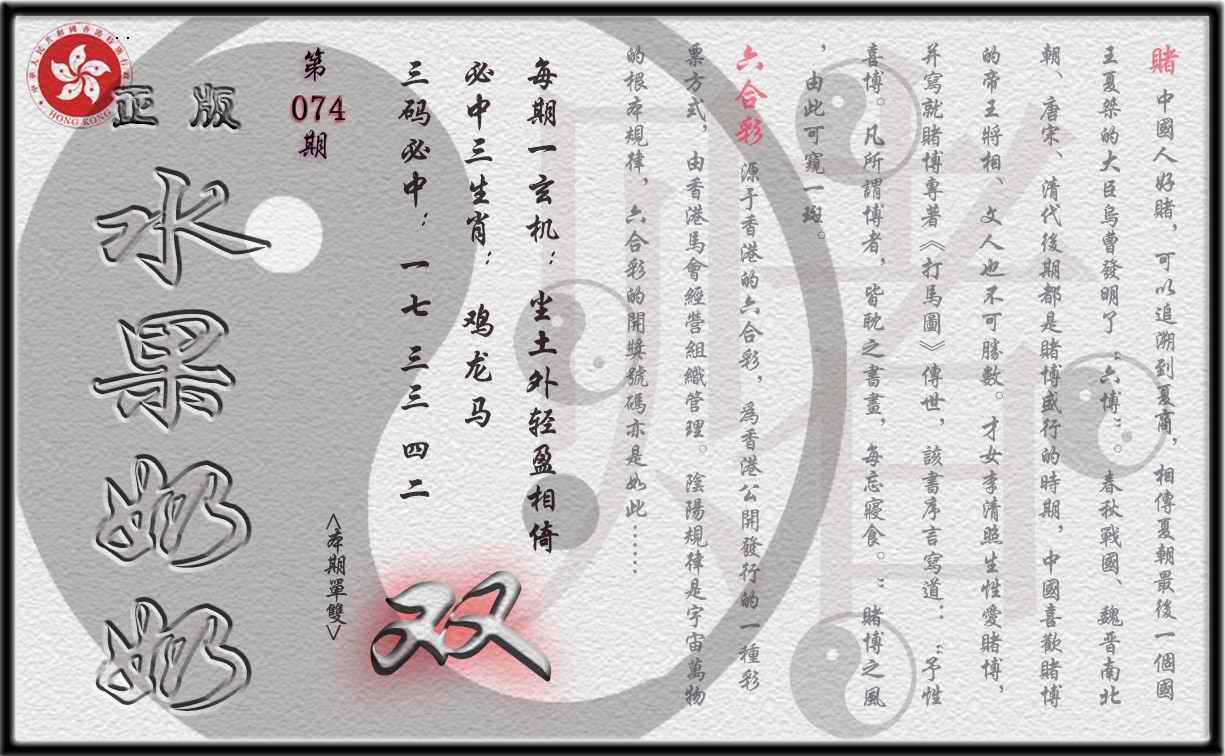 賭 中國人好賭，可以追溯到夏商，相傳夏朝最後一個國
王夏桀的大臣烏曹發明了“六博”。春秋戰國、魏晋南北
朝、唐宋、清代後期都是賭博盛行的時期，中國喜歡賭博
的帝王將相、文人也不可勝數。才女李清照生性愛賭博，
并寫就賭博專著《打馬圖》傳世，該書序言寫道：“予性
喜博。凡所謂博者，皆耽之書晝，每忘寢食。”賭博之風
，由此可窺一斑。
六合彩 源于香港的六合彩，爲香港公開發行的一種彩
票方式，由香港馬會經營組織管理。陰陽規律是宇宙萬物
的根本規律，六合彩的開獎號碼亦是如此……
每期一玄机：坐土外轻盈相倚
必中三生肖：鸡龙马
三码必中：一七 三三 四二
第
074
期
<本期單雙>
双
正版
水果奶奶
HONG KONG